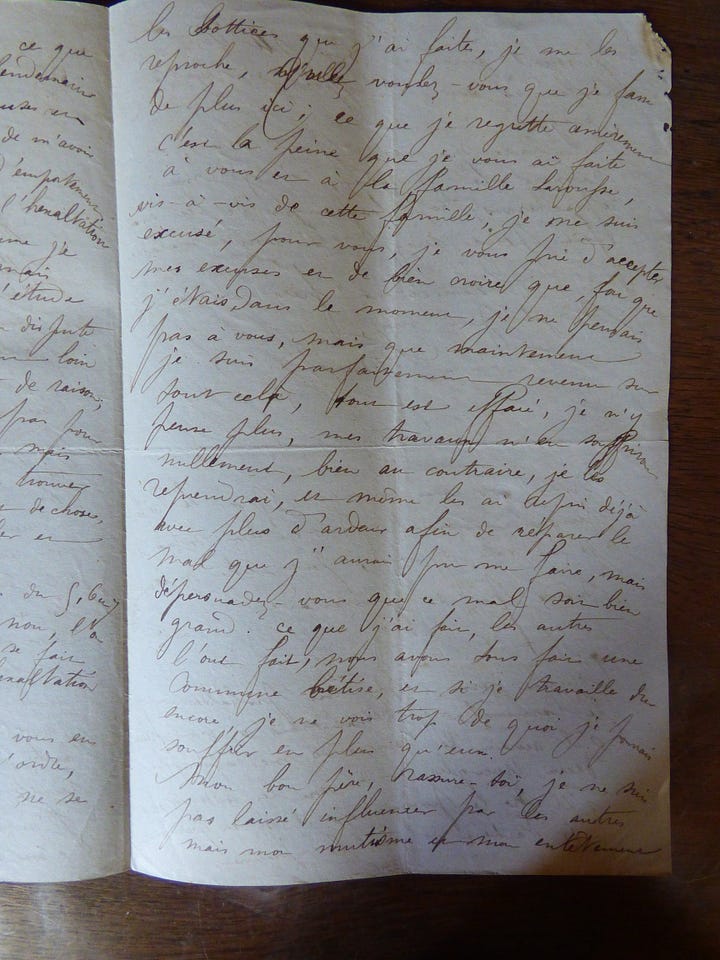 ce que
lendemain
de m'avoir
d'empatement
l'hexaltation
je
mais
l'étude
dispute
loin
de raison,
pas pour
mais
trouver
de choses,
et
du 5, 6 ou 7
non, l'on
se fair
vous en
l'ordre,
ne se
les sottices que j'ai faites, je me les
reproche, voulez-vous que je fasse
de plus ici; ce que je regrette amèrement
c'est la peine que je vous ai faite
à vous et à la famille
vis-à-vis de cette famille; je me suis
excusé, pour vous, je vous prie d'accepter
mes excuses et de bien croire que, fou que
j'étais dans le moment, je ne pensais
pas à vous, mais que maintenant
je suis parfaitement revenu sur
tout cela, tout est effacé, je n'y
pense plus, mes travaux n'en souffriront
nullement, bien au contraire, je les
reprendrai, et même les ai repris déjà
avec plus d'ardeur afin de réparer le
mal que j'aurais pu me faire, mais
dépersuadez-vous que ce mal soit bien
grand. ce que j'ai fait, les autres
l'ont fait, nous avons tous fait une
commune bêtise, et si je travaille dur
encore, je ne vois trop de quoi je pourrais
souffrir en plus qu'eux.
Mon bon père, rassure-toi, je ne suis
pas laissé influencer par les autres
mais mon mutisme et mon entêtement